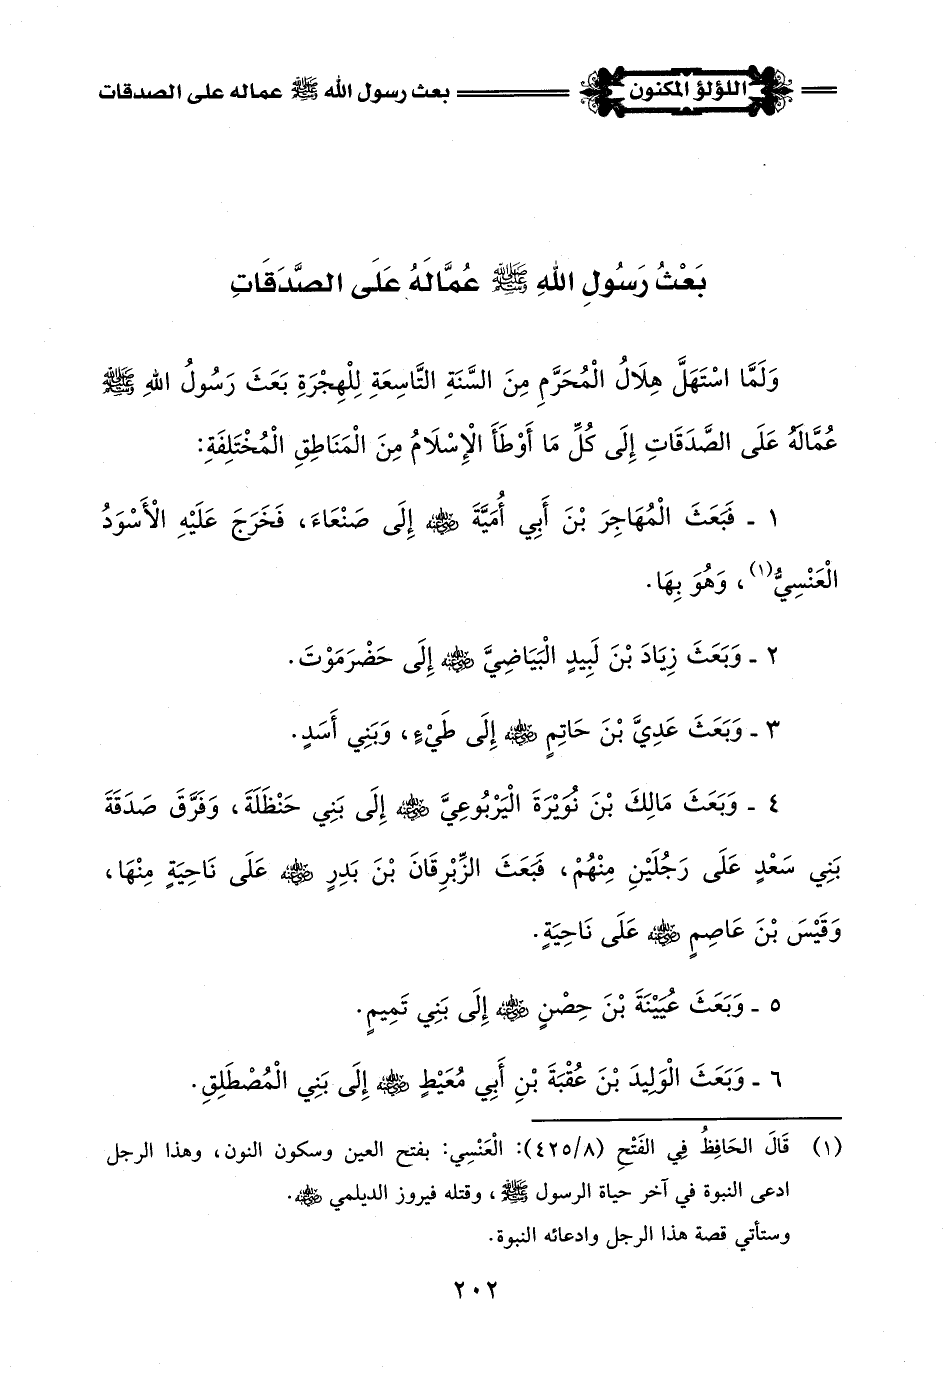 اللؤلؤ المكنون بعث رسول الله ﷺ عماله على الصدقات
بَعْثُ رَسُولِ اللهِ ﷺ عُمَّالَهُ عَلَى الصَّدَقَاتِ
وَلَمَّا اسْتَهَلَّ هِلَالُ الْمُحَرَّمِ مِنَ السَّنَةِ التَّاسِعَةِ لِلْهِجْرَةِ بَعَثَ رَسُولُ اللهِ ﷺ
عُمَّالَهُ عَلَى الصَّدَقَاتِ إِلَى كُلِّ مَا أَوْطَأَ الْإِسْلَامُ مِنَ الْمَنَاطِقِ الْمُخْتَلِفَةِ:
١ ـ فَبَعَثَ الْمُهَاجِرَ بْنَ أَبِي أُمَيَّةَ رضي الله عنه إِلَى صَنْعَاءَ، فَخَرَجَ عَلَيْهِ الْأَسْوَدُ
الْعَنْسِيُّ(١)، وَهُوَ بِهَا.
٢ ـ وَبَعَثَ زِيَادَ بْنَ لَبِيدٍ الْبَيَاضِيَّ رضي الله عنه إِلَى حَضْرَمَوْتَ.
٣ ـ وَبَعَثَ عَدِيَّ بْنَ حَاتِمٍ رضي الله عنه إِلَى طَيْءٍ، وَبَنِي أَسَدٍ.
٤ ـ وَبَعَثَ مَالِكَ بْنَ نُوَيْرَةَ الْيَرْبُوعِيَّ رضي الله عنه إِلَى بَنِي حَنْظَلَةَ، وَفَرَّقَ صَدَقَةَ
بَنِي سَعْدٍ عَلَى رَجُلَيْنِ مِنْهُمْ، فَبَعَثَ الزِّبْرِقَانَ بْنَ بَدِرٍ رضي الله عنه عَلَى نَاحِيَةٍ مِنْهَا،
وَقَيْسَ بْنَ عَاصِمٍ رضي الله عنه عَلَى نَاحِيَةٍ.
٥ ـ وَبَعَثَ عُيَيْنَةَ بْنَ حِصْنٍ رضي الله عنه إِلَى بَنِي تَمِيمٍ.
٦ ـ وَبَعَثَ الْوَلِيدَ بْنَ عُقْبَةَ بْنِ أَبِي مُعَيْطٍ رضي الله عنه إِلَى بَنِي الْمُصْطَلِقِ.
(١) قَالَ الحَافِظُ فِي الفَتْحِ (٤٢٥/٨): الْعَنْسِي: بفتح العين وسكون النون، وهذا الرجل
ادعى النبوة في آخر حياة الرسول ﷺ، وقتله فيروز الديلمي رضي الله عنه.
وستأتي قصة هذا الرجل وادعائه النبوة.
٢٠٢